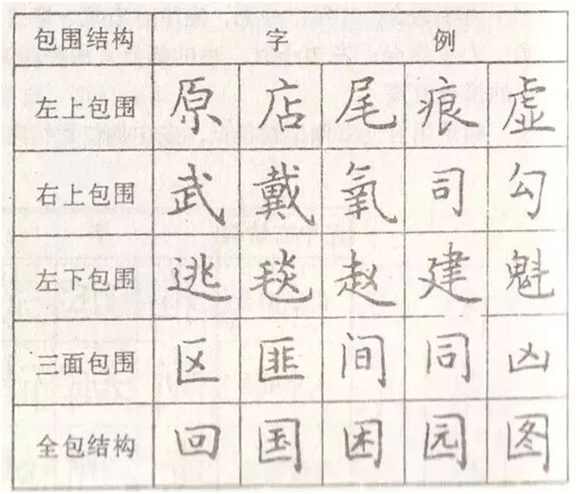 包围结构 字 例
左上包围 原 店 尾 痕 虚
右上包围 武 戴 氧 司 勾
左下包围 逃 毯 赵 建 魁
三面包围 区 匪 间 同 凶
全包结构 回 国 困 园 图